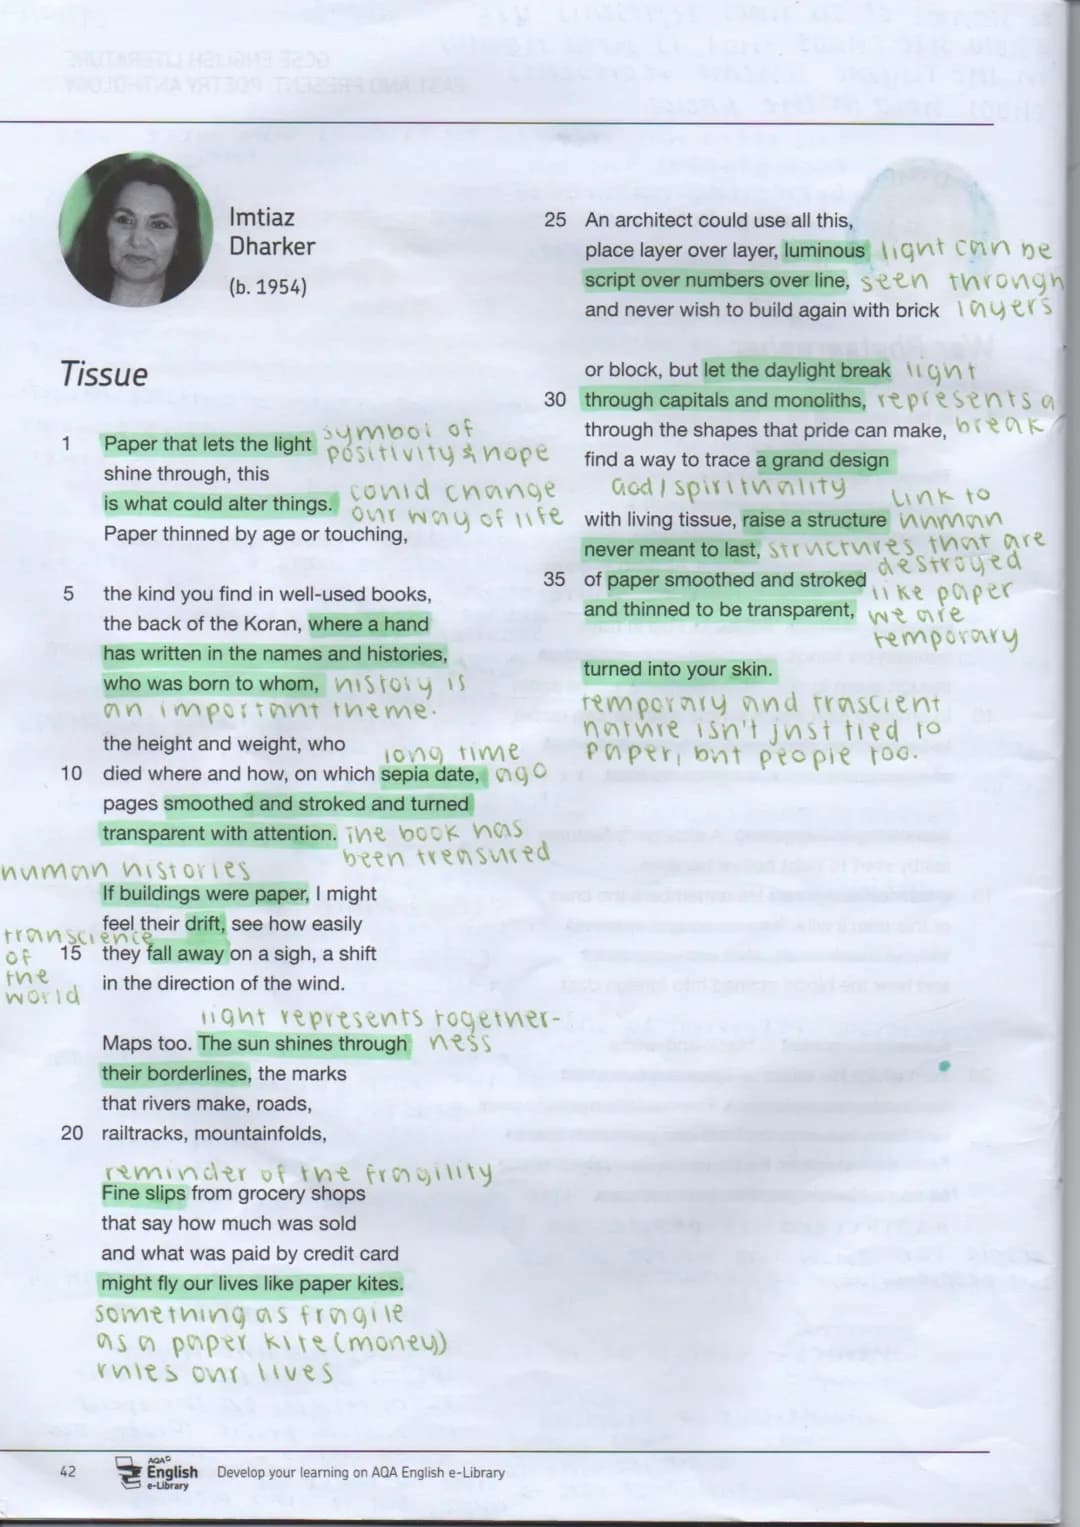 Imtiaz
Dharker
(b. 1954)
Tissue
1 Paper that lets the light symbol of
positivity & hope
shine through, this
is what could alter things. could change
our way of life
Paper thinned by age or touching,
5 the kind you find in well-used books,
the back of the Koran, where a hand
has written in the names and histories,
who was born to whom, history is
an important theme.
the height and weight, who
10 died where and how, on which sepia date, long time ago
pages smoothed and stroked and turned
transparent with attention. The book has
been treasured
human histories
If buildings were paper, I might
feel their drift, see how easily
15 they fall away on a sigh, a shift
in the direction of the wind.
transcience
of
the
world
light represents together-
ness
Maps too. The sun shines through
their borderlines, the marks
that rivers make, roads,
20 railtracks, mountainfolds,
reminder of the fragility
Fine slips from grocery shops
that say how much was sold
and what was paid by credit card
might fly our lives like paper kites.
something as fragile
as a paper kite (money)
rules our lives
25 An architect could use all this,
place layer over layer, luminous light can be
script over numbers over line, seen through
and never wish to build again with brick layers
or block, but let the daylight break light
30 through capitals and monoliths, represents a
through the shapes that pride can make, break
find a way to trace a grand design
God / spirituality
with living tissue, raise a structure Link to
human
never meant to last, structures that are
destroyed
35 of paper smoothed and stroked like paper
and thinned to be transparent, we are
temporary
turned into your skin.
temporary and trascient
nature isn't just tied to
paper, but people too.
42 AQA English e-Library Develop your learning on AQA English e-Library